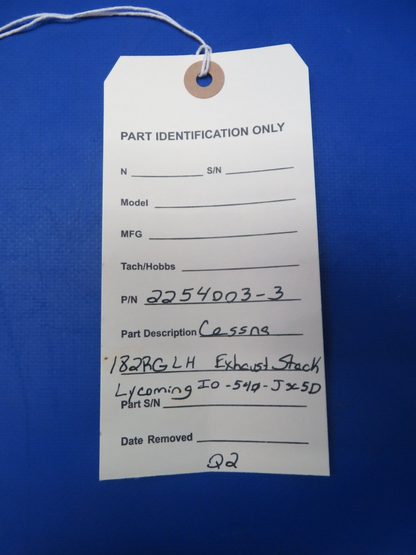 PART IDENTIFICATION ONLY
N S/N
Model
MFG
Tach/Hobbs
P/N 2254003-3
Part Description Cessna
182RG LH Exhaust Stack
Lycoming IO-540-JxSD
Part S/N
Date Removed
Q2